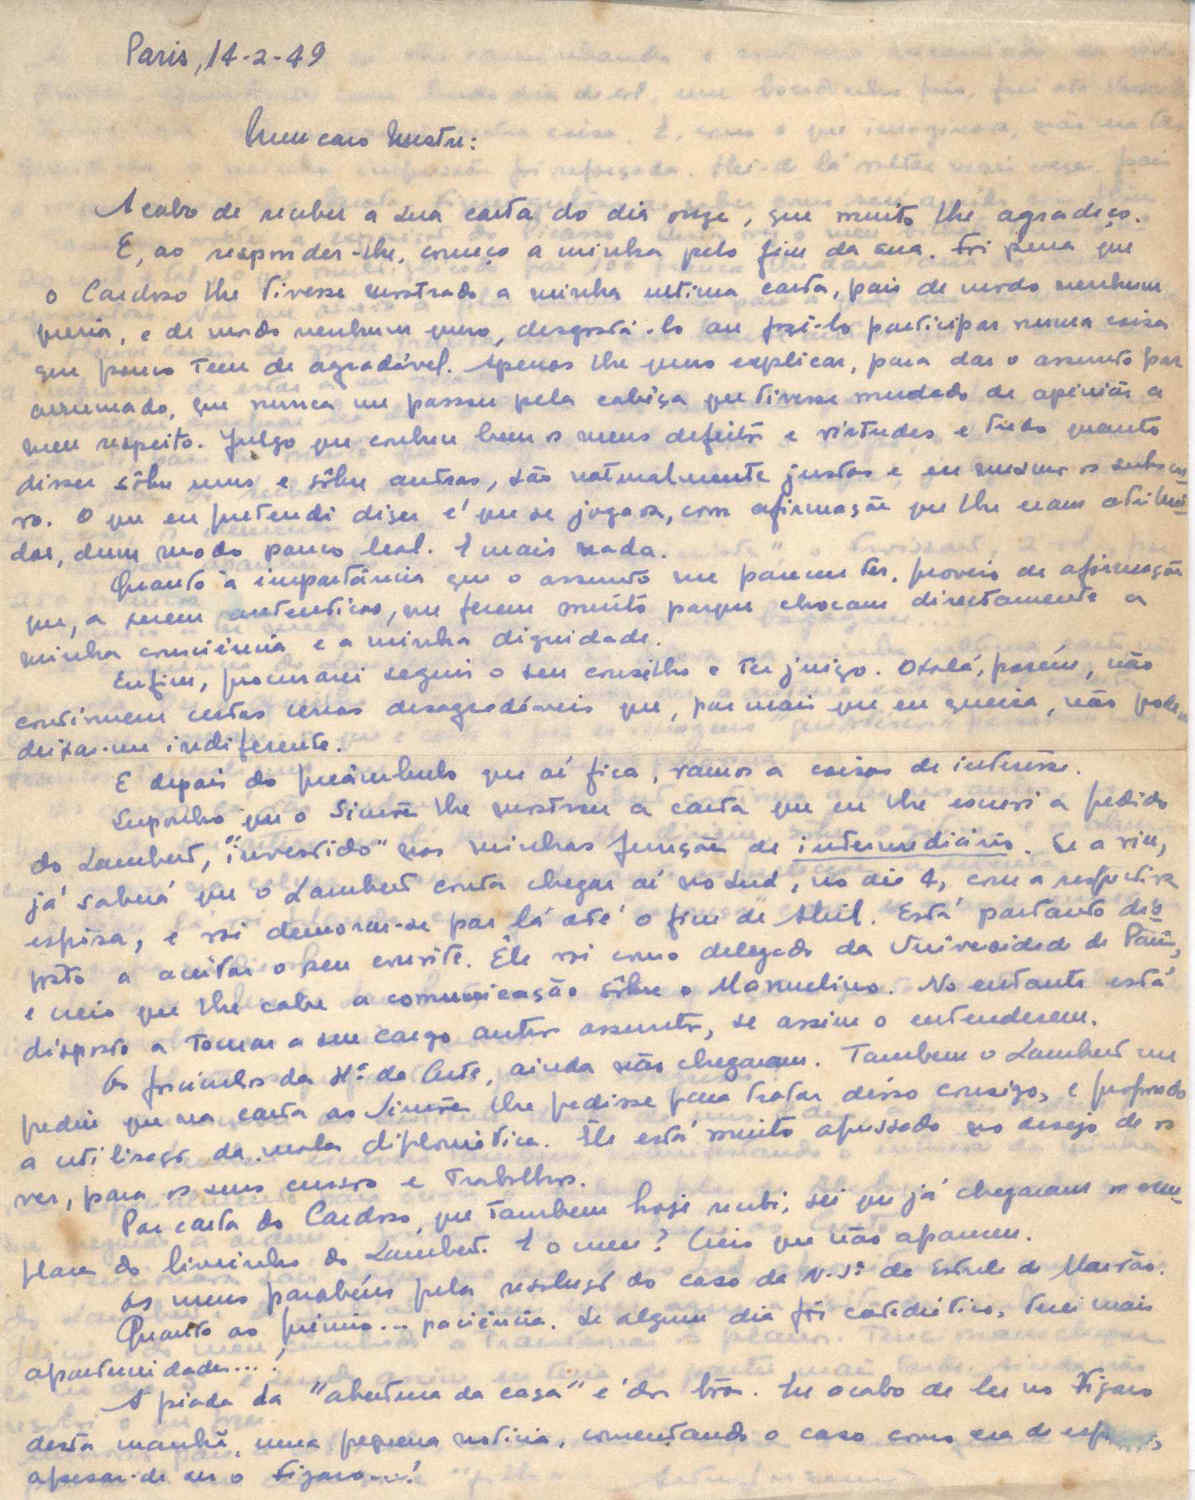 Paris, 14-2-49
Meu caro Mestre:
Acabo de receber a sua carta do dia onze, que muito lhe agradeço.
E, ao responder-lhe, começo a minha pelo fim da sua. Foi pena que
o Cardoso lhe tivesse mostrado a minha ultima carta, pois de modo nenhum
queria, e de modo nenhum quero, desgostá-lo ou fazê-lo participar numa coisa
que pouco tem de agradável. Apenas lhe quero explicar, para dar o assunto por
arrumado, que nunca me passou pela cabeça que tivesse mudado de opinião a
meu respeito. Julgo que conheço bem os meus defeitos e virtudes e tudo quanto
disser sôbre uns e sôbre outras, são naturalmente justos e eu mesmo os subscre
vo. O que eu pretendi dizer é que se jogara, com afirmação que lhe eram atribuí
das, dum modo pouco leal. E mais nada.
Quanto à importância que o assunto me parece ter, proveio de afirmação
que, a serem autenticas, me ferem muito porque chocam directamente a
minha consciência e a minha dignidade.
Enfim, procurarei seguir o seu conselho e ter juizo. Oxalá, porém, não
continuem certas cenas desagradáveis que, por mais que eu queira, não podem
deixar-me indiferente.
E depois do preâmbulo que aí fica, vamos a coisas de interêsse.
Suponho que o Simões lhe mostrou a carta que eu lhe escrevi a pedido
do Lambert, "investido" nas minhas funções de intermediário. Se a viu,
já saberá que o Lambert conta chegar aí no Sud, no dia 4, com a respectiva
esposa, e vai demorar-se por lá até o fim de Abril. Está portanto dis
posto a aceitar o seu convite. Êle vai como delegado da Universidade de Paris,
e creio que lhe cabe a comunicação sôbre o Manuelino. No entanto está
disposto a tomar a seu cargo outros assuntos, se assim o entenderem.
Os fascículos da Hª da Arte, ainda não chegaram. Tambem o Lambert me
pediu que na carta ao Simões lhe pedisse para tratar disso consigo, e propondo
a utilisação da mala diplomática. Êle está muito apressado no desejo de os
ver, para os seus cursos e trabalhos.
Por carta do Cardoso, que tambem hoje recebi, sei que já chegaram os exem-
plares do livrinho do Lambert. E o meu? Creio que não aparecem.
Os meus parabéns pela resolução do caso da N. Sª da Estrela de Marvão.
Quanto ao prémio... paciência. Se algum dia fôr catedrático, terei mais
oportunidades...!
A piada da "abertura da casa" é das bôas. Eu acabo de ler no Figaro
desta manhã, uma pequena noticia, comentando o caso como era de
apesar de ser o Figaro...!